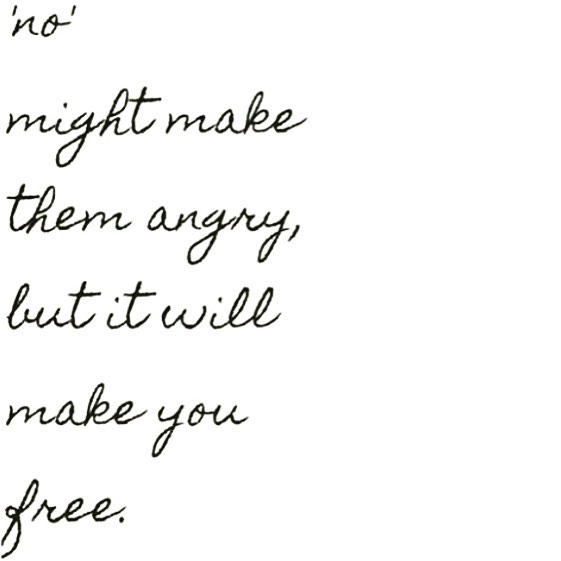 'no'
might make
them angry,
but it will
make you
free.